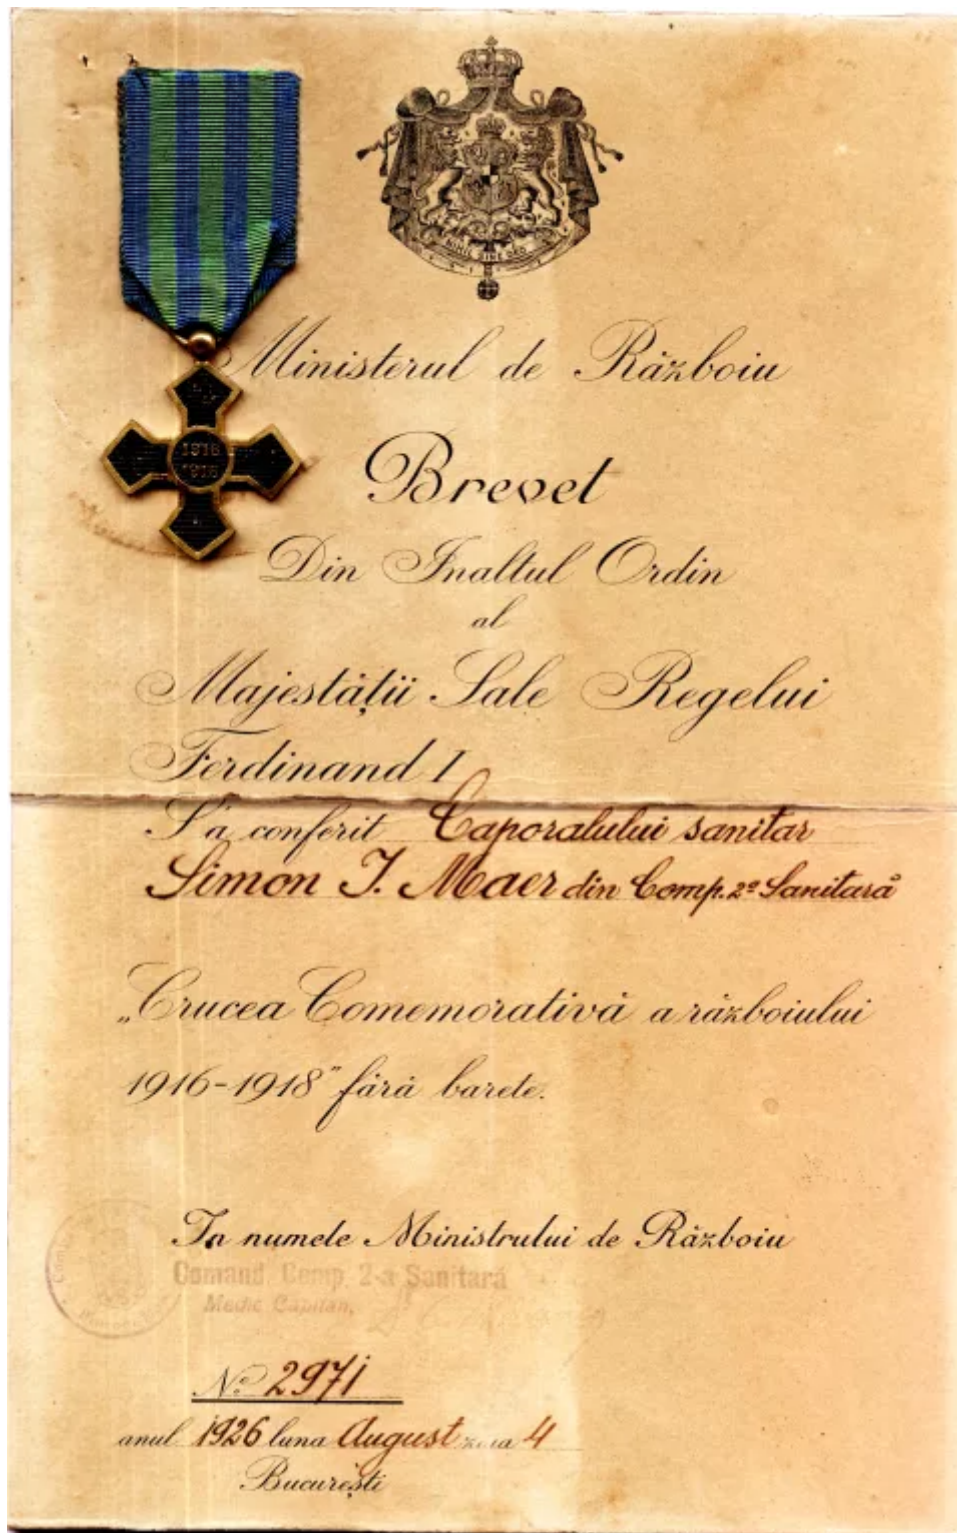 NIHIL SINE DEO
Ministerul de Război̇u
1916
1918
Brevet
Din Inaltul Ordin
al
Majestăţii Sale Regelui
Ferdinand I
S'a conferit Caporalului sanitar
Simon I. Maer din Comp. 2ª Sanitară
„Crucea Comemorativă a războiului
1916-1918” fără barete.
In numele Ministrului de Războiu
Comand. Comp. 2-a Sanitară
Medic Capitan,
Nº 2971
anul 1926 luna August ziua 4
Bucureşti